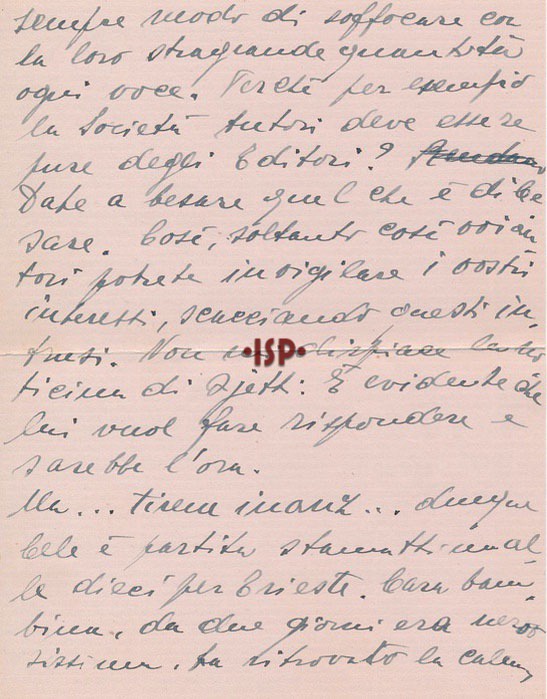 sempre modo di soffocare con
la loro stragrande quantità
ogni voce. Perché per esempio
la Società Autori deve essere
pure degli Editori?
Date a Cesare quel che è di Ce
sare. Così, soltanto così voi au
tori potrete invigilare i vostri
interessi, scacciando questi in
trusi. Non mi dispiace la no
•ISP•
ticina di Ojetti: È evidente che
lui vuol fare rispondere e
sarebbe l'ora.
Ma... tirem inanz... dunque
Cele è partita stamattina al
le dieci per Trieste. Cara bam
bina, da due giorni era nervo
sissima, ha ritrovato la calma